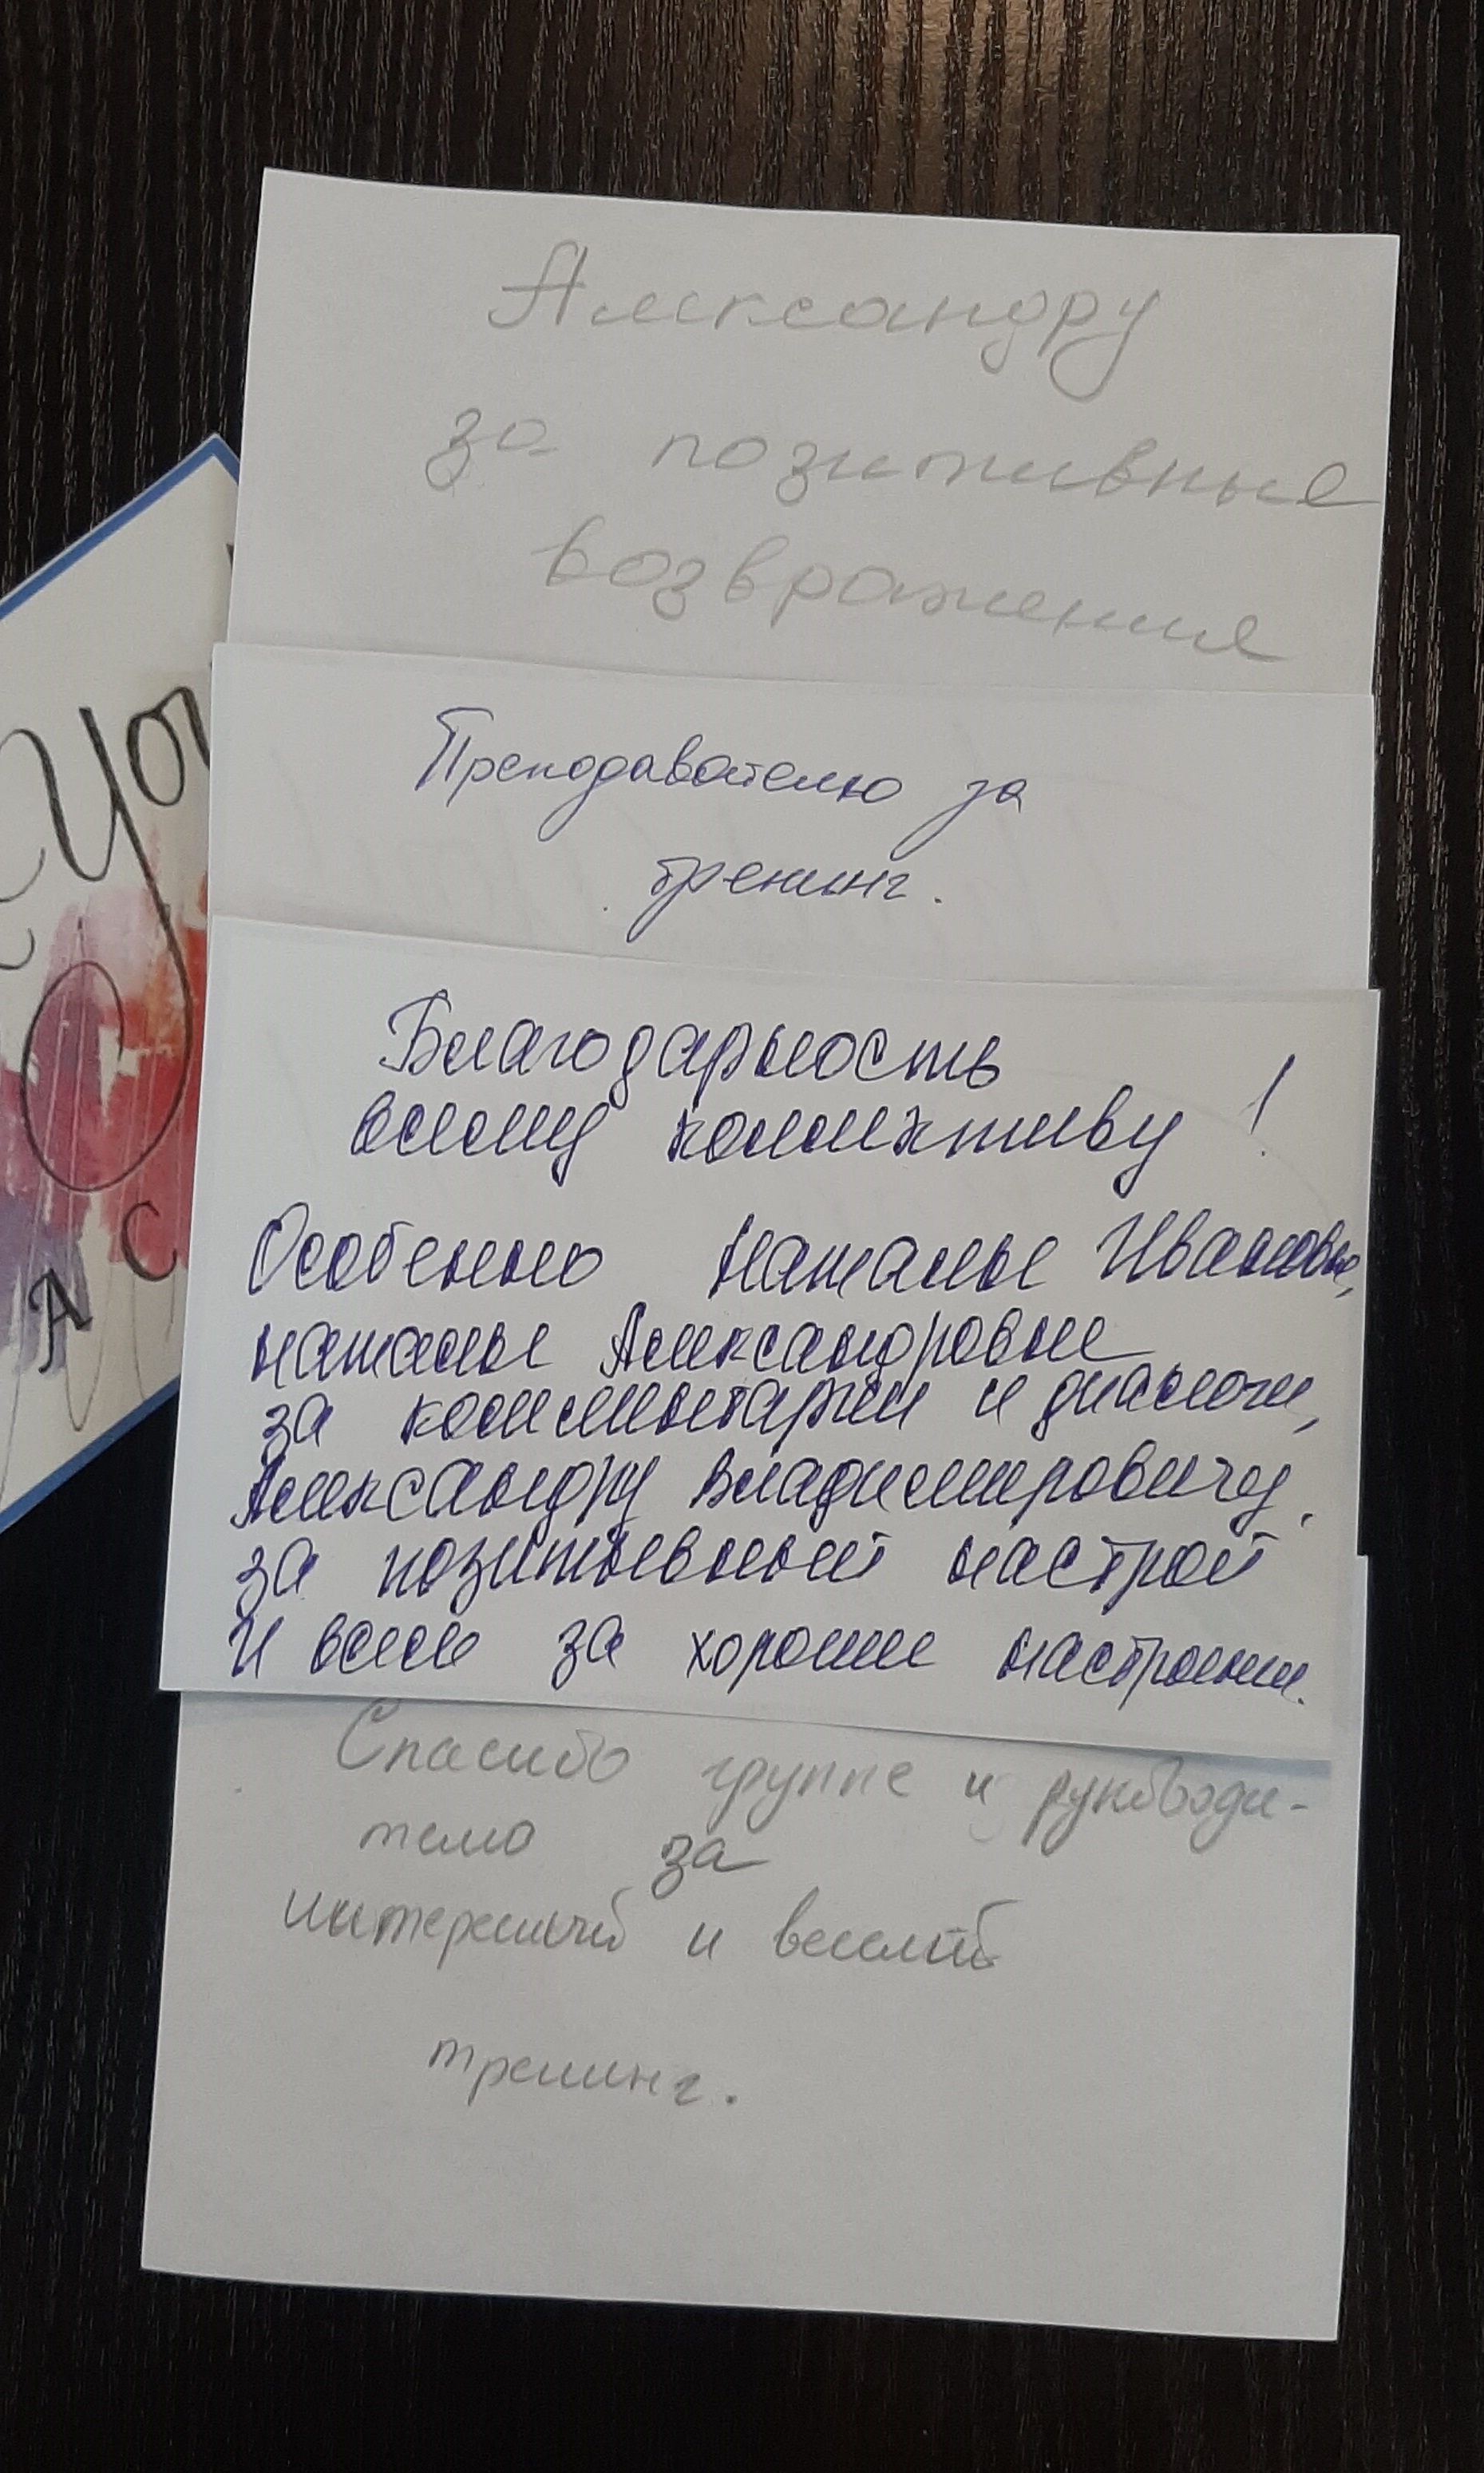 Александру
за позитивные
возвражения
Преподавателю за
тренинг.
Благодарность
всему коллективу!
Особенно Наталье Ивановне,
Наталье Александровне
за комментарии и диалоги,
Александру Владимировичу,
за позитивный настрой
И всем за хорошее настроение.
Спасибо группе и руководи-
телю за
интересный и веселый
тренинг.
You
A C